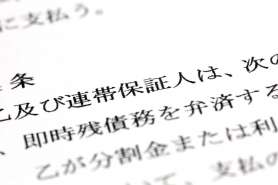 に支払う。
条
乙及び連帯保証人は、次の
、即時残債務を弁済する
乙が分割金または利
いて、支払の